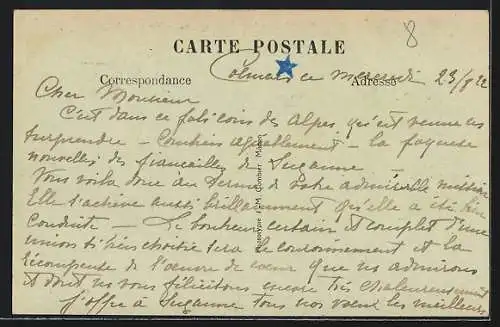 8
CARTE POSTALE
Correspondance
Adresse
Colmars ce mercredi 23/8 22
Cher Monsieur
C'est dans ce joli coin des Alpes, qu'est venue us
surprendre – combien agréablement – la joyeuse
nouvelle des fiançailles de Suzanne.
Vous voilà donc au terme de votre admirable mission
Elle s'achève aussi brillamment qu'elle a été bien
conduite – Le bonheur certain et complet d'une
union si bien choisie sera le couronnement et la
récompense de l'œuvre de cœur que ns admirons
et dont ns vous félicitons encore très chaleureusement
J'offre à Suzanne tous nos vœux les meilleurs
Combier Macon